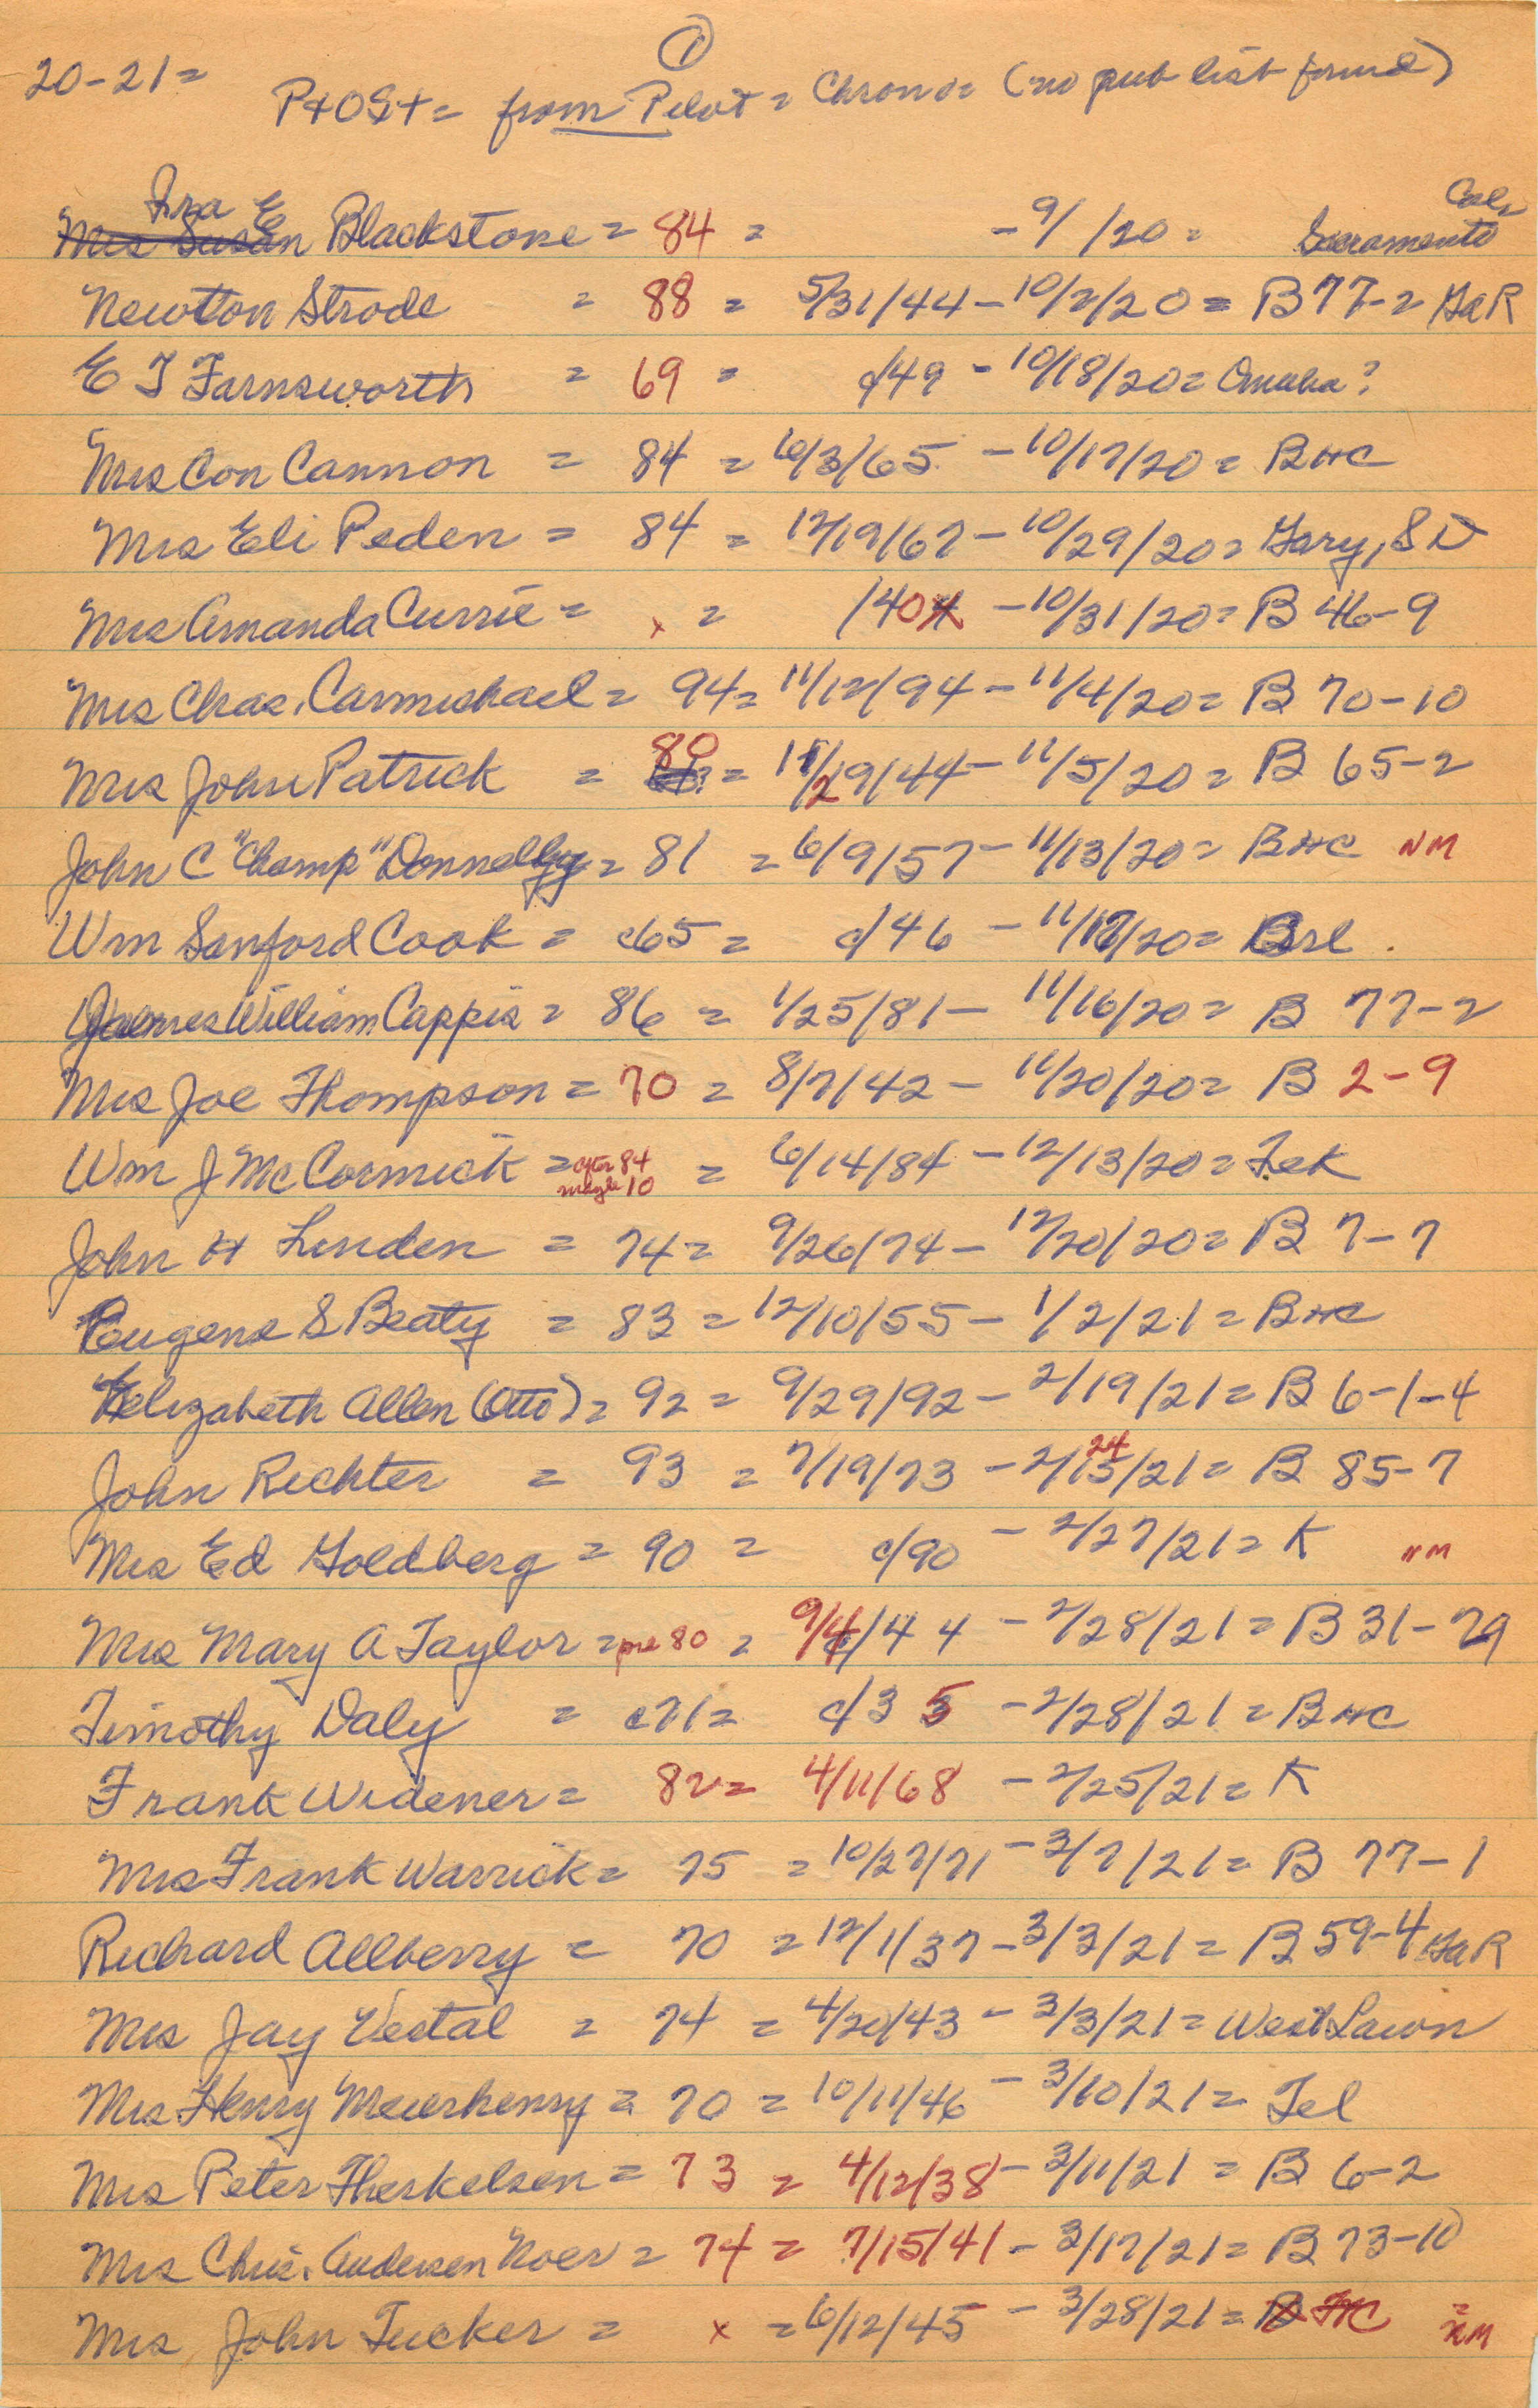 ①
20-21=
P+OS+= from Pilot = Chrono= (no pub list found)
Ira E Calif
Mrs Susan Blackstone = 84 = -9/ /20 = Sacramento
Newton Strode = 88 = 5/31/44-10/2/20 = B 77-2 GaR
E J Farnsworth = 69 = c/49 -10/18/20= Omaha?
Mrs Con Cannon = 84 = 6/3/65 -10/17/20= BHC
Mrs Eli Peden = 84 = 12/19/67-10/29/20= Gary, SD
Mrs Amanda Currie = x = /40 -10/31/20= B 46-9
Mrs Chas. Carmichael = 94= 11/12/94-11/4/20= B 70-10
80
Mrs John Patrick = = 12/19/44-11/5/20= B 65-2
John C "Champ" Donnelly = 81 = 6/9/57-11/13/20= BHC NM
Wm Sanford Cook = c65 = c/46 -11/12/20= Brl.
James William Cappis = 86 = 1/25/81- 11/16/20= B 77-2
Mrs Joe Thompson = 70 = 8/7/42- 11/20/20= B 2-9
Wm J McCormick = after 84 = 6/14/84 -12/13/20= Tek
maybe 10
John H Linden = 74= 9/26/74-12/20/20= B 7-7
Eugene S Beaty = 83 = 12/10/55- 1/2/21= BHC
Elizabeth Allen (Otto) = 92 = 9/29/92- 2/19/21= B 6-1-4
24
John Richter = 93 = 7/19/73 -2/15/21= B 85-7
Mrs Ed Goldberg = 90 = c/90 - 2/27/21= K NM
Mrs Mary A Taylor = pre 80 = 9/4/44 -2/28/21= B 31-29
Timothy Daly = c71= c/35 -2/28/21= BHC
Frank Widener = 82= 4/11/68 -2/25/21= K
Mrs Frank Warrick= 75 = 10/27/71 -3/7/21= B 77-1
Richard Allberry = 70 = 12/1/37-3/3/21= B 59-4 GaR
Mrs Jay Vestal = 74 = 4/20/43 - 3/3/21= West Lawn
Mrs Henry Meierhenry = 70 = 10/11/46 - 3/10/21= Tel
Mrs Peter Therkelsen = 73 = 4/12/38- 3/11/21 = B 6-2
Mrs Chris. Andersen Noer = 74 = 7/15/41- 3/17/21= B 73-10
Mrs John Tucker = x =6/12/45 - 3/28/21= B HC = NM